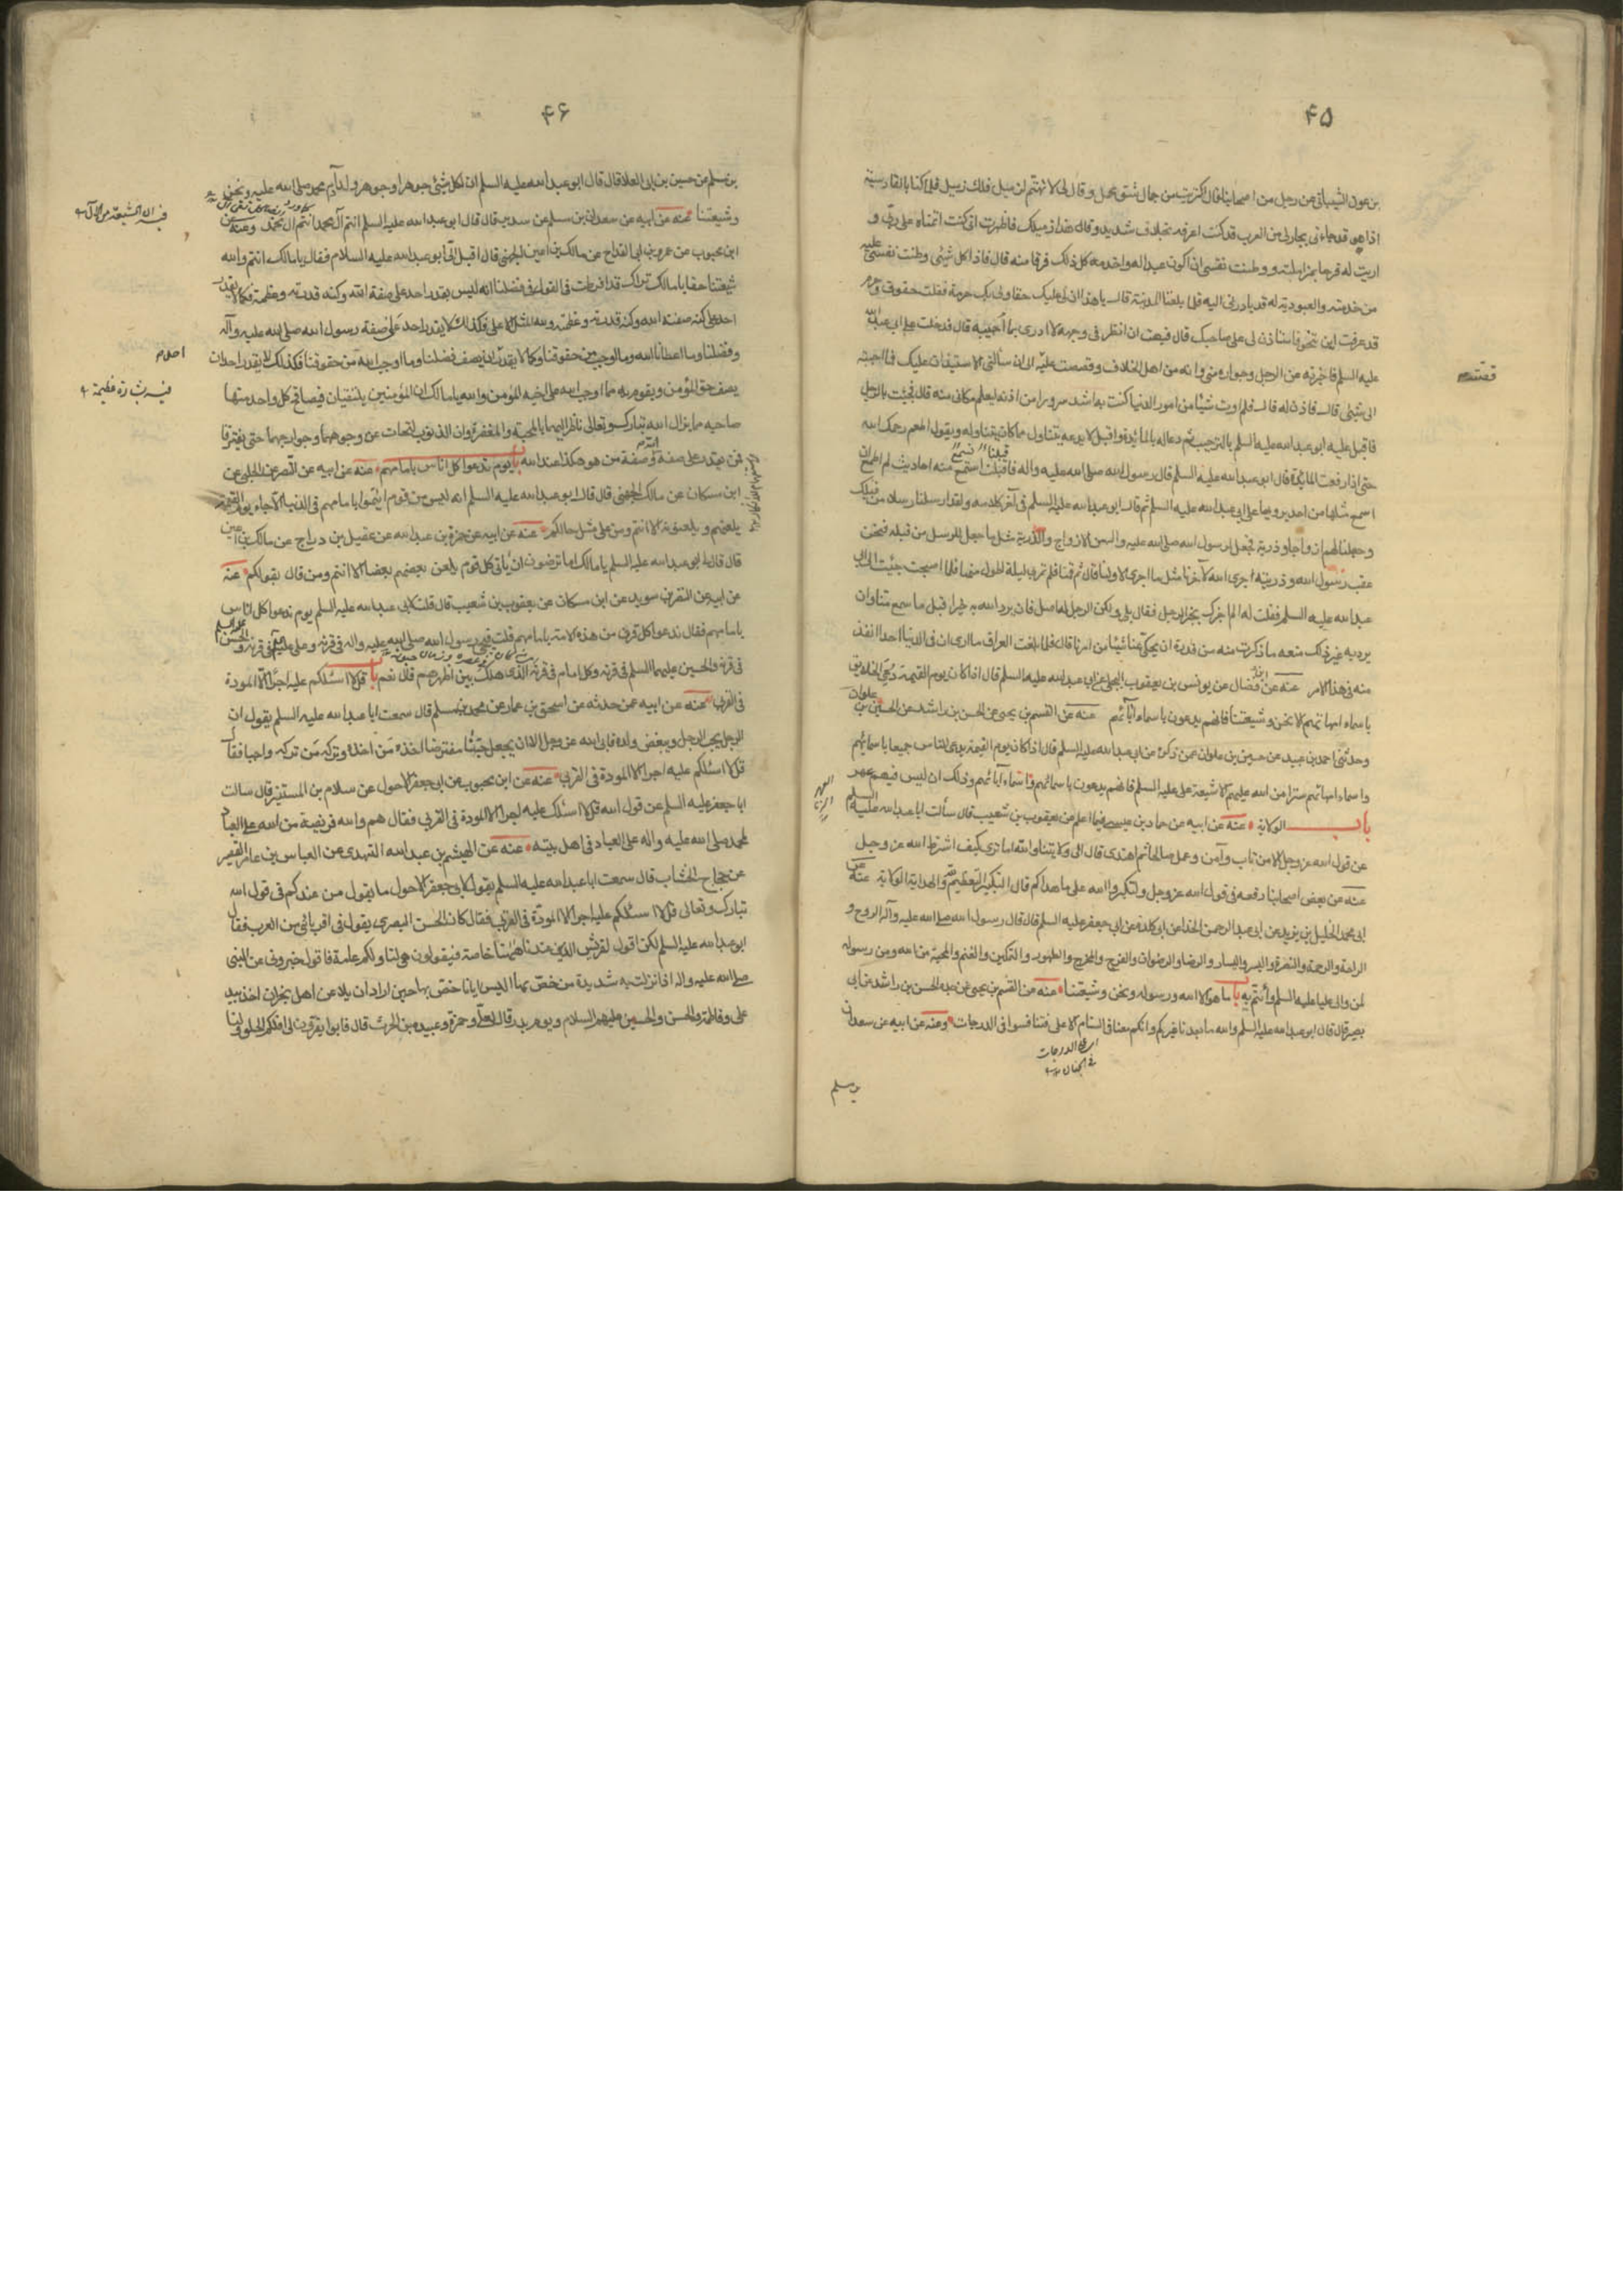 ۴۵
بن عون الشيباني عن رجل من اصحابنا قال اكتريت من جمال شق محمل وقال لي لا تهتم لزميل فلك زميل فلما كنا بالقادسية
اذا هو قد جاءني بجار لي من العرب قد كنت اعرفه بخلاف شديد وقال هذا زميلك فاظهرت اني كنت اتمناه على ربي و
اريت له فرحا بمزاملته ووطنت نفسي ان اكون عبدا له واخدمه كل ذلك فرقا منه قال فاذا كل شيئ وطنت نفسي عليه
من خدمته والعبودية له قد بادرني اليه فلما بلغنا المدينة قال يا هذا ان لي عليك حقا ولي بك حرمة فقلت حقوق وحرم
قد عرفت اين تنحو فاستاذن لي على صاحبك قال فبهت ان انظر في وجهه لا ادري بما اجيبه قال فدخلت على ابي عبد الله
عليه السلم فاخبرته عن الرجل وجواره مني وانه من اهل الخلاف وقصصت عليه الى ان سألني الاستيذان عليك فما اجبته
قصته
الى شيئ قال فاذن له قال فلم اوت شيئا من امور الدنيا كنت به اشد سرورا من اذنه ليعلم مكاني منه قال فجئت بالرجل
فاقبل عليه ابو عبد الله عليه السلم بالترحيب ثم دعا له بالمائدة واقبل لا يدعه يتناول مما كان يتناوله ويقول اطعم رحمك الله
حتى اذا رفعت المائدة قال ابو عبد الله عليه السلم قال رسول الله صلى الله عليه واله فاقبلت استمع منه احاديث لم اطمع ان
قبلنا نسمع
اسمع مثلها من احد يرويها على ابي عبد الله عليه السلم ثم قال ابو عبد الله عليه السلم في آخر كلامه ولقد ارسلنا رسلا من قبلك
وجعلنا لهم ازواجا وذرية فجعل لرسول الله صلى الله عليه واله من الازواج والذرية مثل ما جعل للرسل من قبله فنحن
عقب رسول الله وذريته اجرى الله لآخرنا مثل ما اجرى لاولنا قال ثم قمنا فلم تمر بي ليلة اطول منها فلما اصبحت جئت الى ابي
عبد الله عليه السلم فقلت له الم اخبرك بخبر الرجل فقال بلى ولكن الرجل له اصل فان يرد الله به خيرا قبل ما سمع منا وان
يرد به غير ذلك منعه ما ذكرت منه من قدره ان يحكي عنا شيئا من امرنا قال فلما بلغت العراق ما ارى ان في الدنيا احدا انفذ
منه في هذا الامر عنه عن ابن فضال عن يونس بن يعقوب البجلي عن ابي عبد الله عليه السلم قال اذا كان يوم القيمة دعي الخلايق
باسماء امهاتهم الا نحن وشيعتنا فانهم يدعون باسماء آبائهم عنه عن القسم بن يحيى عن الحسن بن راشد عن الحسين بن علوان
وحدثني احمد بن عبيد عن حسين بن علوان عمن ذكره عن ابي عبد الله عليه السلم قال اذا كان يوم القيمة يدعى الناس جميعا باسمائهم
واسماء امهاتهم سترا من الله عليهم الا شيعة علي عليه السلم فانهم يدعون باسمائهم واسماء آبائهم وذلك ان ليس فيهم عهر
العهر الزنا
باب الولاية عنه عن ابيه عن حماد بن عيسى فيما اعلم عن يعقوب بن شعيب قال سألت ابا عبد الله عليه السلم
عن قول الله عز وجل الا من تاب وآمن وعمل صالحا ثم اهتدى قال الى ولايتنا والله اما ترى كيف اشترط الله عز وجل
عنه عن بعض اصحابنا رفعه في قول الله عز وجل ولتكبروا الله على ما هداكم قال التكبير التعظيم لله والهداية الولاية عنه عن
ابي محمد الخليل بن يزيد عن ابي عبد الرحمن الحذا عن ابي كلدة عن ابي جعفر عليه السلم قال قال رسول الله صلى الله عليه وآله الروح و
الراحة والرحمة والنصرة واليسر واليسار والرضا والرضوان والفرج والمخرج والظهور والتمكين والغنم والمحبة من الله ومن رسوله
لمن والى عليا عليه السلم وائتم به باب ما هو الا الله ورسوله ونحن وشيعتنا عنه عن القسم بن يحيى عن جده الحسن بن راشد عن ابي
بصير قال قال ابو عبد الله عليه السلم والله ما بعدنا غيركم وانكم معنا في السنام الاعلى فتنافسوا في الدرجات وعنه عن ابيه عن سعدان
بن مسلم
۴۶
بن مسلم عن حسين بن ابي العلا قال قال ابو عبد الله عليه السلم ان لكل شيئ جوهرا وجوهر ولد آدم محمد صلى الله عليه ونحن
وشيعتنا عنه عن ابيه عن سعدان بن مسلم عن سدير قال قال ابو عبد الله عليه السلم انتم آل محمد انتم آل محمد وعنه عن
ابن محبوب عن عمرو بن ابي المقدام عن مالك بن اعين الجهني قال اقبل الي ابو عبد الله عليه السلام فقال يا مالك انتم والله
شيعتنا حقا يا مالك تراك قد افرطت في القول في فضلنا انه ليس يقدر احد على صفة الله وكنه قدرته وعظمته فكما لا يقدر
احد على كنه صفة الله وكنه قدرته وعظمته ولله المثل الاعلى فكذلك لا يقدر احد على صفة رسول الله صلى الله عليه وآله
وفضلنا وما اعطانا الله وما اوجب من حقوقنا وكما لا يقدر ان يصف فضلنا وما اوجب الله من حقوقنا فكذلك لا يقدر احد ان
يصف حق المؤمن ويقوم به مما اوجب الله على اخيه المؤمن والله يا مالك ان المؤمنين يلتقيان فيصافح كل واحد منهما
صاحبه ما يزال الله تبارك وتعالى ناظرا اليهما بالمحبة والمغفرة وان الذنوب لتحات عن وجوههما وجوارحهما حتى يفترقا
فمن يقدر على صفة الله وصفة من هو هكذا عند الله باب يوم ندعوا كل اناس بامامهم عنه عن ابيه عن النضر عن الحلبي عن
ابن مسكان عن مالك الجهني قال قال ابو عبد الله عليه السلم انه ليس من قوم ائتموا بامامهم في الدنيا الا جاء يوم القيمة
يلعنهم ويلعنونه الا انتم ومن على مثل حالكم عنه عن ابيه عن حمزة بن عبد الله عن عقيل بن دراج عن مالك بن اعين
قال قال لي ابو عبد الله عليه السلم يا مالك اما ترضون ان يأتي كل قوم يلعن بعضهم بعضا الا انتم ومن قال بقولكم عنه
عن ابيه عن النضر بن سويد عن ابن مسكان عن يعقوب بن شعيب قال قلت لابي عبد الله عليه السلم يوم ندعوا كل اناس
بامامهم فقال ندعوا كل قرن من هذه الامة بامامهم قلت فيجيئ رسول الله صلى الله عليه واله في قرنه وعلي عليه السلم في قرنه والحسن عليه السلم
في قرنه والحسين عليهما السلم في قرنه وكل امام في قرنه الذي هلك بين اظهرهم قال نعم باب قل لا اسئلكم عليه اجرا الا المودة
في القربى عنه عن ابيه عمن حدثه عن اسحق بن عمار عن محمد بن مسلم قال سمعت ابا عبد الله عليه السلم يقول ان
الرجل يحب الرجل ويبغض ولده فابى الله عز وجل الا ان يجعل حبنا مفترضا اخذه من اخذه وتركه من تركه واجبا فقال
قل لا اسئلكم عليه اجرا الا المودة في القربى عنه عن ابن محبوب عن ابي جعفر الاحول عن سلام بن المستنير قال سالت
ابا جعفر عليه السلم عن قول الله قل لا اسئلكم عليه اجرا الا المودة في القربى فقال هم والله فريضة من الله على العباد
لمحمد صلى الله عليه واله على العباد في اهل بيته عنه عن الهيثم بن عبد الله النهدي عن العباس بن عامر القصير
عن حجاج الخشاب قال سمعت ابا عبد الله عليه السلم يقول لابي جعفر الاحول ما يقول من عندكم في قول الله
تبارك وتعالى قل لا اسئلكم عليه اجرا الا المودة في القربى فقال كان الحسن البصري يقول في اقربائي من العرب فقال
ابو عبد الله عليه السلم لكن اقول لقريش الذين عندنا هيهنا خاصة فيقولون هي لنا ولكم عامة فاقول خبروني عن النبي
صلى الله عليه واله اذا نزلت به شديدة من خص بها اليس ايانا خص بها حين اراد ان يلاعن اهل نجران اخذ بيد
علي وفاطمة والحسن والحسين عليهم السلام ويوم بدر قال لعلي وحمزة وعبيدة بن الحرث قال فابوا يقرون لي افلكم الحلو ولنا
احدهم